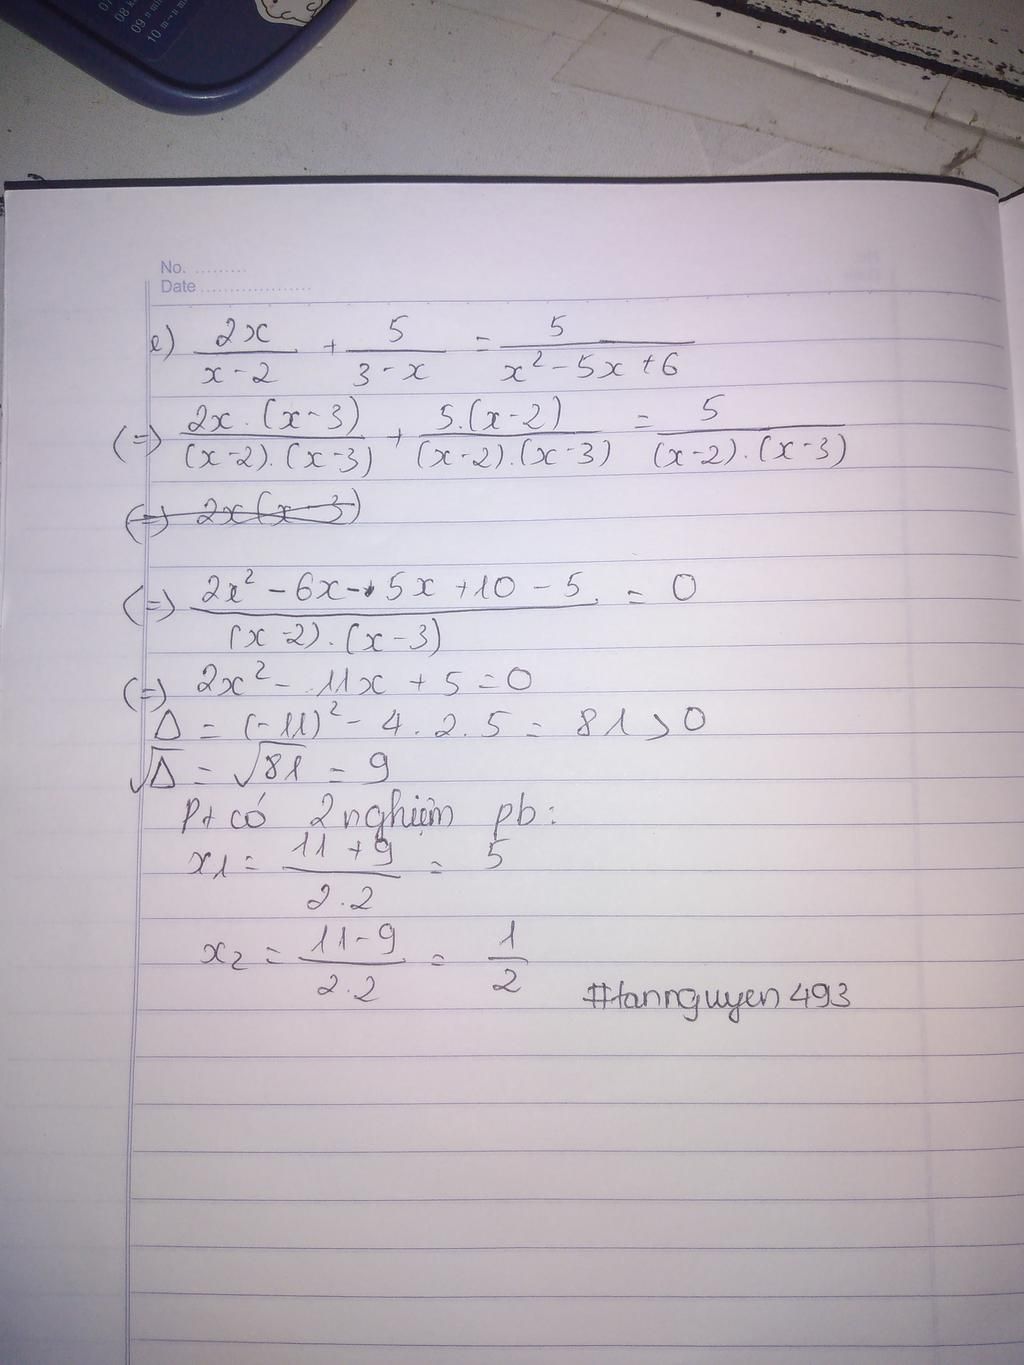 07
08 k
09 = mi
10 m→= m
No. .........
Date ...................
e) 2x/(x-2) + 5/(3-x) = 5/(x²-5x+6)
(=) 2x.(x-3)/((x-2).(x-3)) + 5.(x-2)/((x-2).(x-3)) = 5/((x-2).(x-3))
(=) 2x(x-3)
(=) (2x²-6x-5x+10-5)/((x-2).(x-3)) = 0
(=) 2x²-11x+5=0
Δ = (-11)²-4.2.5 = 81>0
√Δ = √81 = 9
Pt có 2 nghiệm pb:
x1 = (11+9)/(2.2) = 5
x2 = (11-9)/(2.2) = 1/2
#tannguyen493